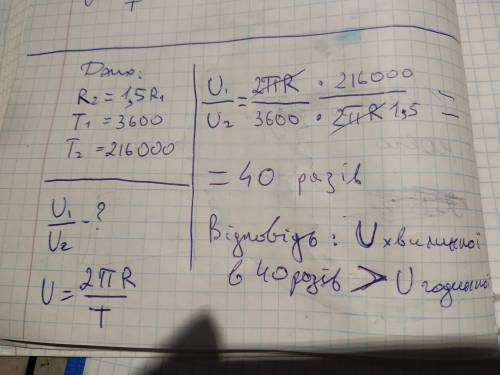 Дано:
R₂ = 1,5R₁
T₁ = 3600
T₂ = 216000
U₁/U₂ - ?
U = 2πR/T
U₁/U₂ = 2πR · 216000 / 3600 · 2πR 1,5 =
= 40 разів
Відповідь: U хвилинної
в 40 разів > U годинної